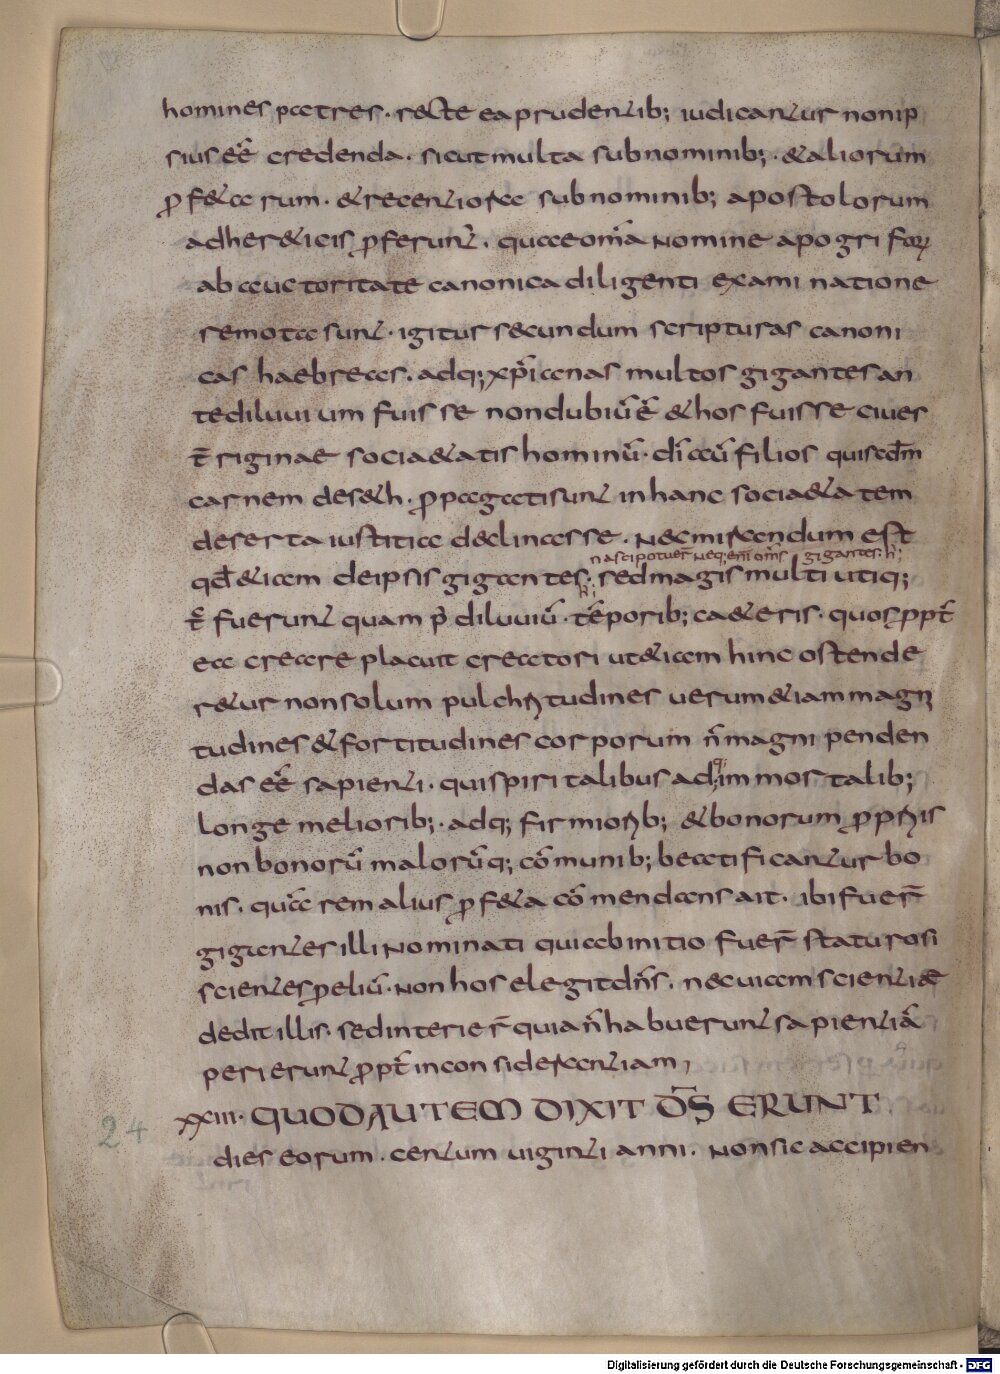 homines patres · recte ea prudentib; iudicantur non ip
sius eē̄ credenda · sicut multa sub nominib; · & aliorum
ꝓf&arum · & recentiora sub nominib; apostolorum
ad her&icis ꝓferunt̄ · quae om̄a nomine apogrifoꝝ
ab auctoritate canonica diligenti examinatione
remota sunt · igitur secundum scripturas canoni
cas haebreas · adq; xp̄ianas multos gigantes an
tediluuium fuisse non dubiū ē & hos fuisse ciues
t̄riginae socia&atis hominū · dī aū filios qui scd̄m
carnem de s&h · ꝓpagati sunt in hanc socia&atem
deserta iustitia declinasse · Nec mirandum est
nasci potuer̄ neq; enī om̄s gigantes · h̄;
qd̄ &iam de ipsis gigantes · sed magis multi utiq;
h̄;
t̄ fuerunt quam p̄ diluuiū · tēporib; ca&eris · quos ꝓpt̄
ea creare placuit creatori ut &iam hinc ostende
r&ur non solum pulchritudines uerum &iam magni
tudines & fortitudines corporum n̄ magni penden
das eē̄ sapienti · qui spiritalibus adq; immortalib;
longe meliorib; · adq; firmiorib; & bonorum ꝓpriis
non bonorū malorūq; cōmunib; beatificantur bo
nis · quā rem alius ꝓf&a cōmendans ait · ibi fuer̄
gigantes illi Nominati qui ab initio fuer̄ staturosi
scientes p̱eliū · Non hos elegit dn̄s · nec uiam scientiae
dedit illis · sed interier̄ quia n̄ habuerunt sapientiā
perierunt ꝓpt̄ inconsiderantiam,
24
xxiii · QUOD AUTEM DIXIT D̄S ERUNT
dies eorum · centum uiginti anni · Non sic accipien
Digitalisierung gefördert durch die Deutsche Forschungsgemeinschaft - DFG